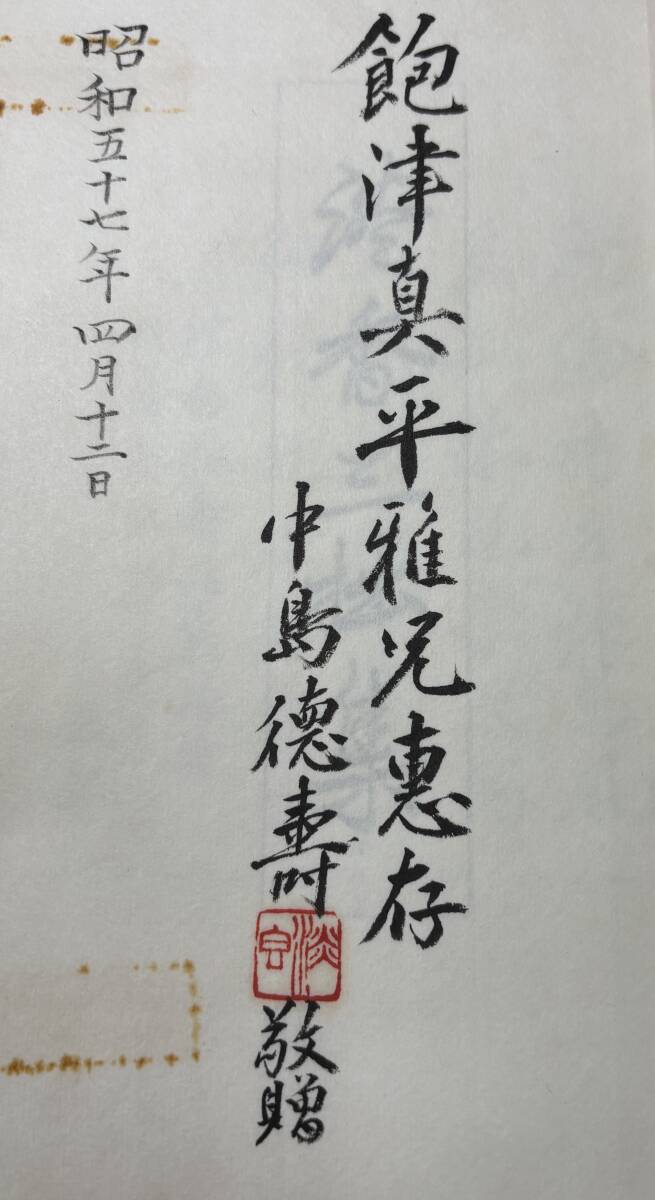 飽津真平雅兄惠存
中島德壽
敬贈
昭和五十七年四月十二日